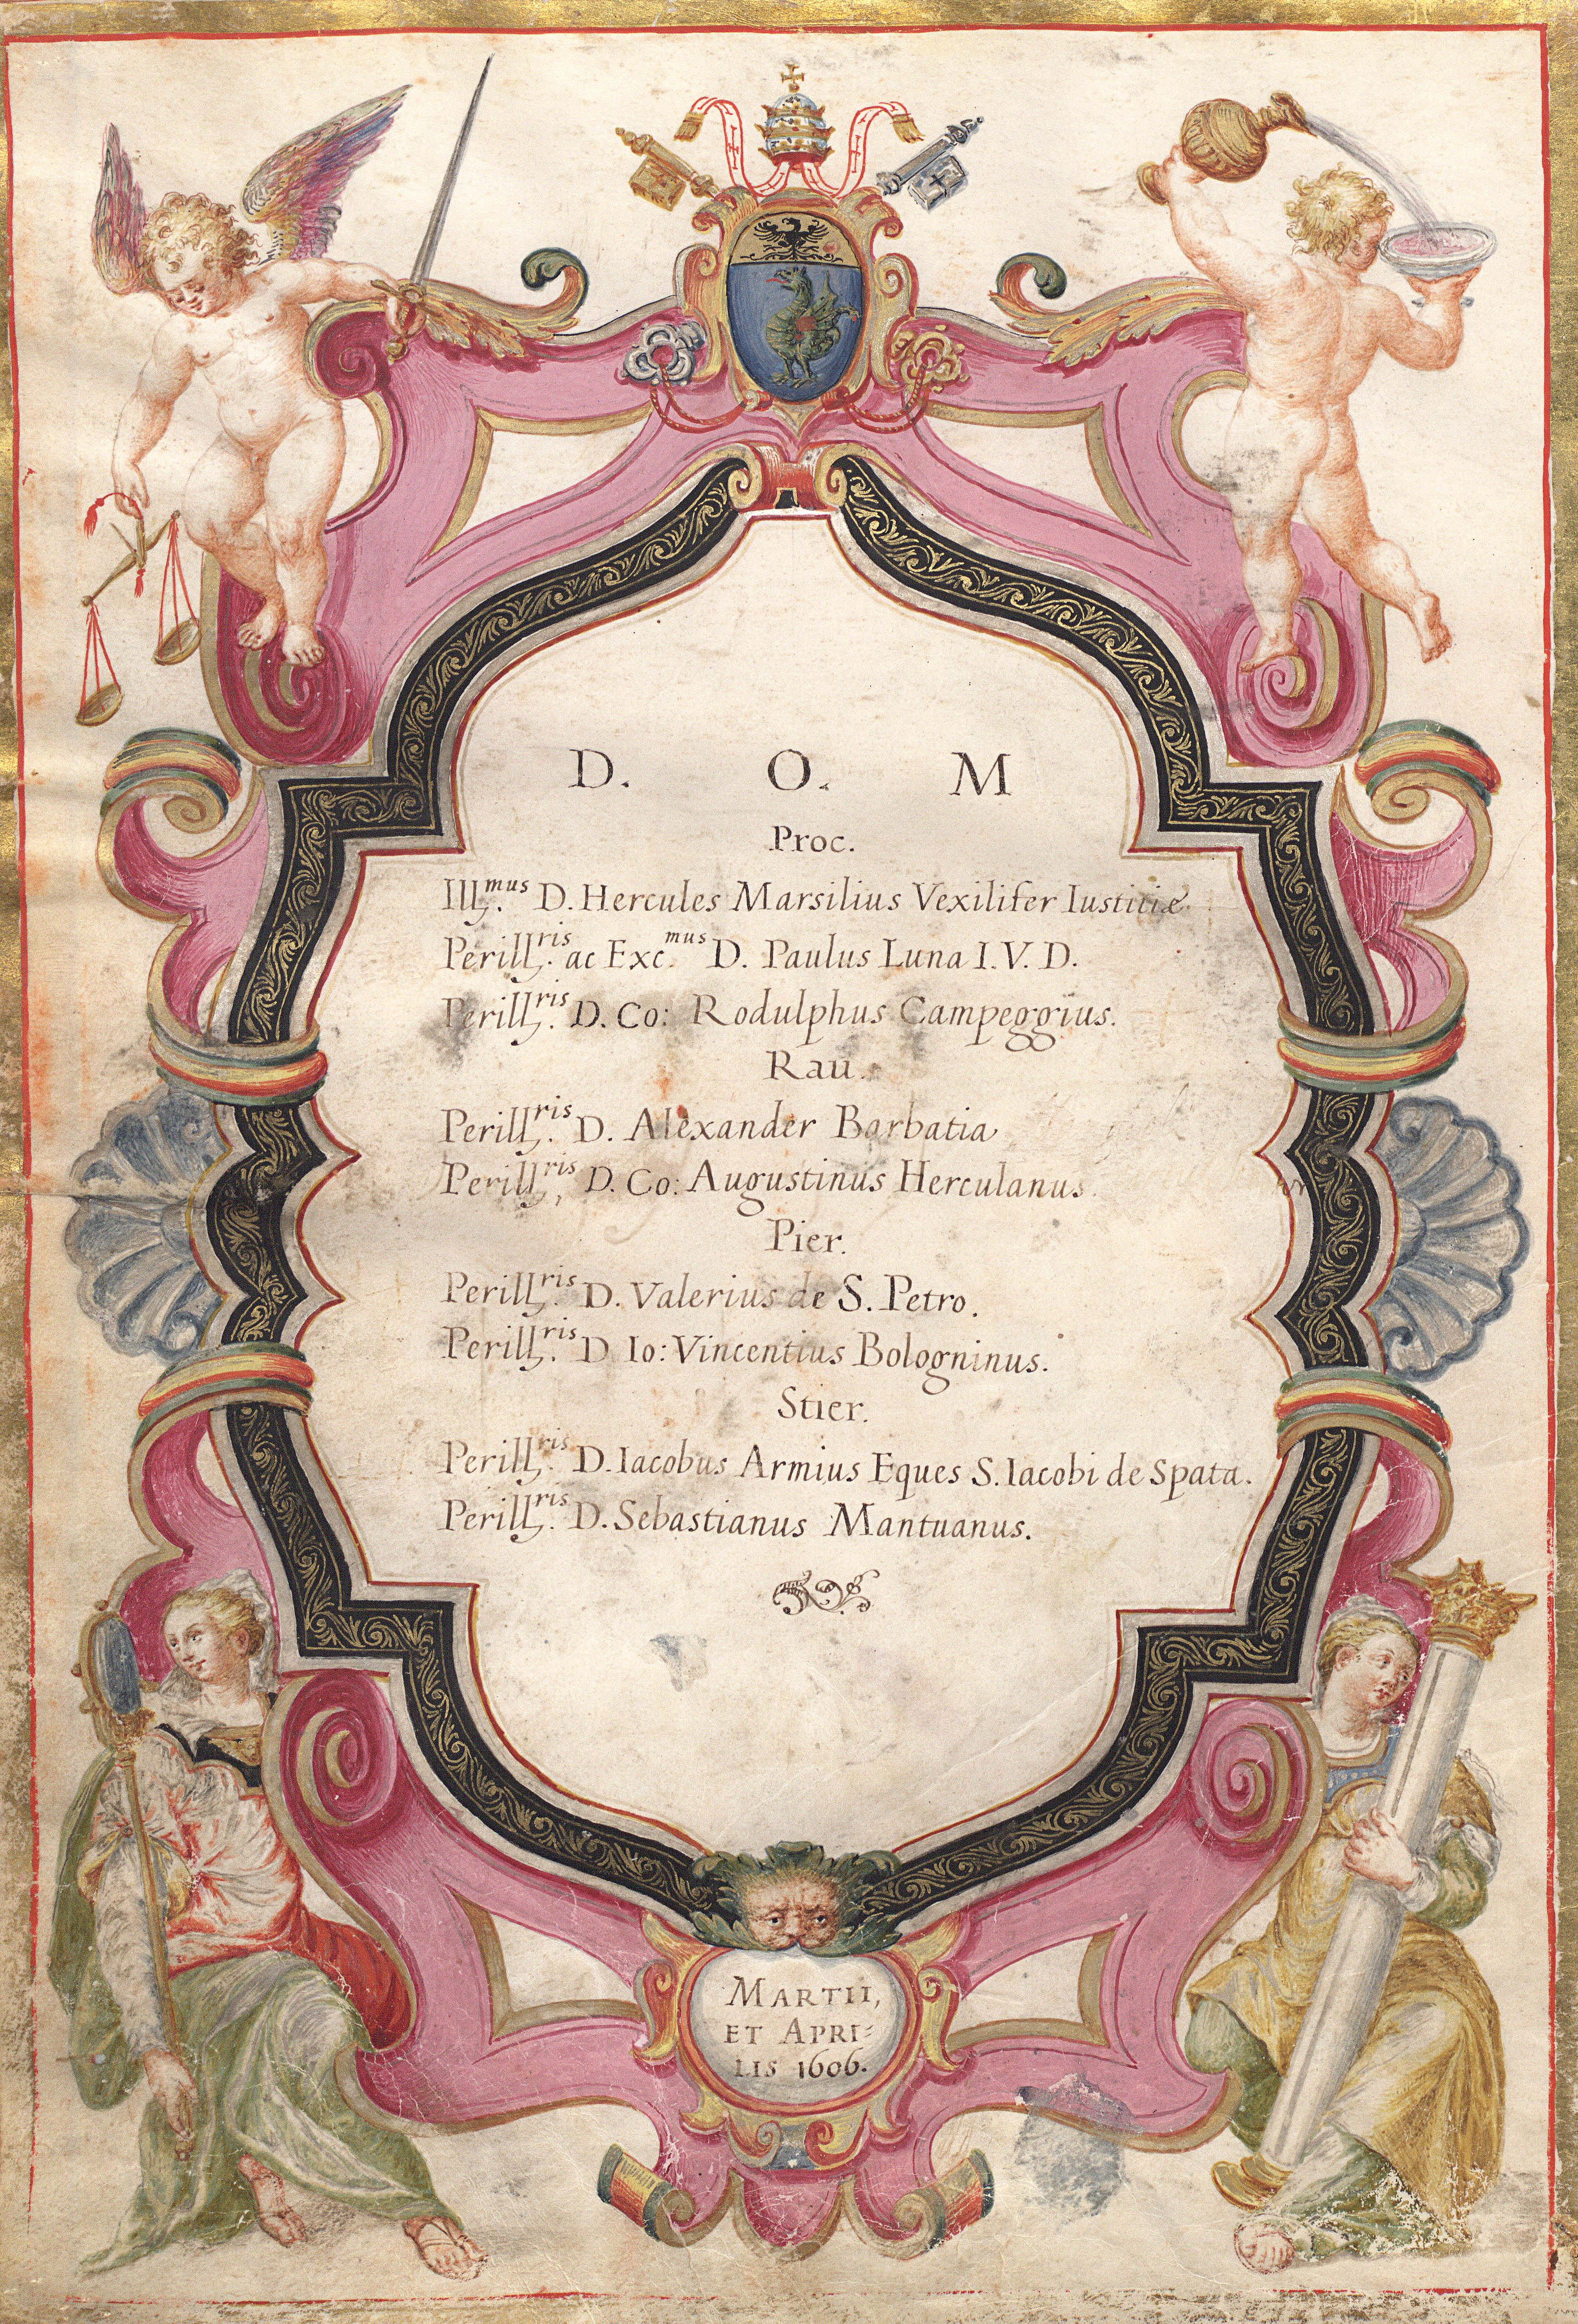 D. O. M
Proc.
Ill.mus D. Hercules Marsilius Vexilifer Iustitiæ.
Perill.ris ac Exc.mus D. Paulus Luna I. V. D.
Perill.ris D. Co: Rodulphus Campeggius.
Rau.
Perill.ris D. Alexander Barbatia
Perill.ris D. Co: Augustinus Herculanus.
Pier.
Perill.ris D. Valerius de S. Petro.
Perill.ris D Io: Vincentius Bologninus.
Stier.
Perill.ris D. Iacobus Armius Eques S. Iacobi de Spata.
Perill.ris D. Sebastianus Mantuanus.
MARTII,
ET APRI=
LIS 1606.